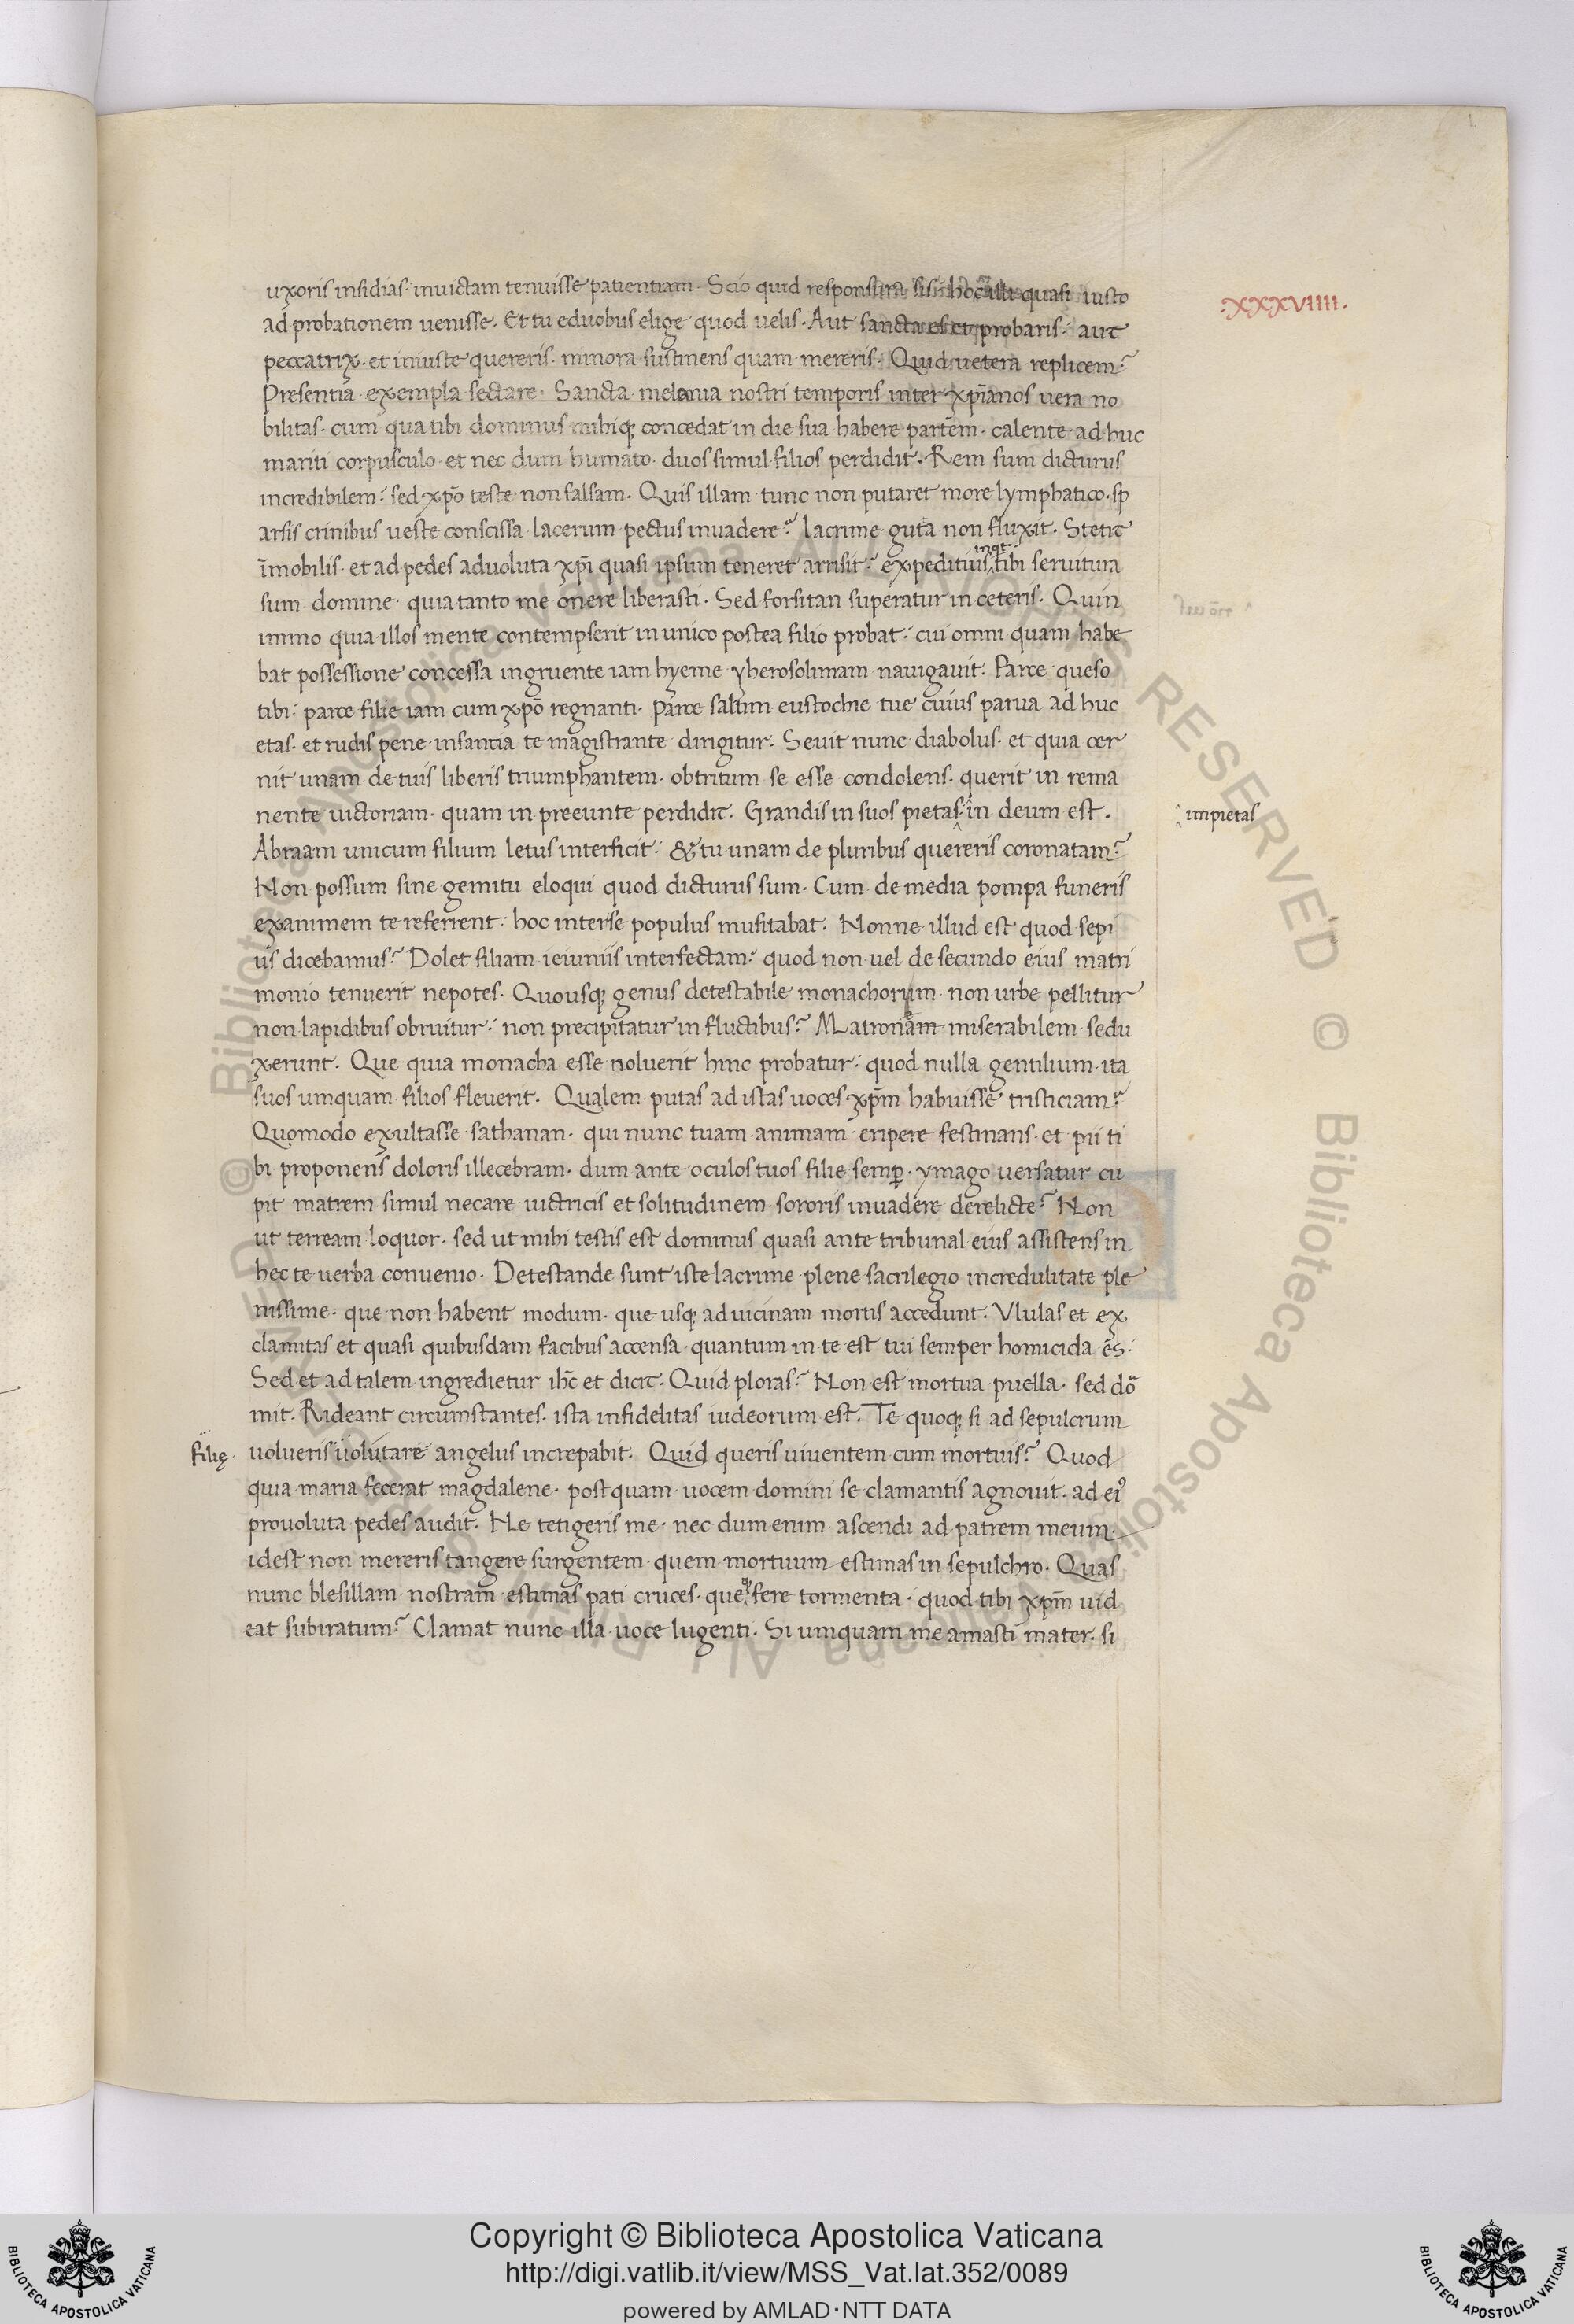 ·XXXVIIII·
uxoris insidias· inuictam tenuisse patientiam· Scio quid responsura sis· hoc illi quasi iusto
ad probationem uenisse· Et tu eduobus elige quod uelis· Aut sancta es et probaris· aut
peccatrix· et iniuste quereris· minora sustinens quam mereris· Quid uetera replicem?
Presentia exempla sectare· Sancta melania nostri temporis inter xp̄ianos uera no
bilitas· cum qua tibi dominus mihiq; concedat in die sua habere partem· calente ad huc
mariti corpusculo· et nec dum humato· duos simul filios perdidit· Rem sum dicturus
incredibilem· sed xp̄o teste non falsam· Quis illam tunc non putaret more lymphatico· sp
arsis crinibus ueste conscissa lacerum pectus inuadere? lacrime gutta non fluxit· Stetit
īmobilis· et ad pedes aduoluta xp̄i quasi ipsum teneret arrisit· expeditius inqt tibi seruitura
sum domine· quia tanto me onere liberasti· Sed forsitan superatur in ceteris· Quin
immo quia illos mente contempserit in unico postea filio probat· cui omni quam habe
bat possessione concessa ingruente iam hyeme yherosolimam nauigauit· Parce queso
tibi· parce filie iam cum xp̄o regnanti· Parce saltim eustochie tue cuius parua ad huc
etas· et rudis pene infantia te magistrante dirigitur· Seuit nunc diabolus· et quia cer
nit unam de tuis liberis triumphantem· obtritum se esse condolens· querit in rema
nente uictoriam· quam in preeunte perdidit· Grandis in suos pietas· in deum est·
^ impietas
Abraam unicum filium letus interficit· & tu unam de pluribus quereris coronatam?
Non possum sine gemitu eloqui quod dicturus sum· Cum de media pompa funeris
exanimem te referrent· hoc inter se populus musitabat· Nonne illud est quod sepi
us dicebamus? Dolet filiam ieiuniis interfectam· quod non uel de secundo eius matri
monio tenuerit nepotes· Quousq; genus detestabile monachorum non urbe pellitur
non lapidibus obruitur· non precipitatur in fluctibus? Matronam miserabilem sedu
xerunt· Que quia monacha esse noluerit hinc probatur· quod nulla gentilium ita
suos umquam filios fleuerit· Qualem putas ad istas uoces xp̄m habuisse tristiciam?
Quomodo exultasse sathanan· qui nunc tuam animam eripere festinans· et pii ti
bi proponens doloris illecebram· dum ante oculos tuos filie semp̄· ymago uersatur cu
pit matrem simul necare uictricis et solitudinem sororis inuadere derelicte? Non
ut terream loquor· sed ut mihi testis est dominus quasi ante tribunal eius assistens in
hec te uerba conuenio· Detestande sunt iste lacrime plene sacrilegio incredulitate ple
nissime· que non habent modum· que usq; ad uicinam mortis accedunt· Vlulas et ex
clamitas et quasi quibusdam facibus accensa quantum in te est tui semper homicida es·
Sed et ad talem ingredietur ihc̄ et dicit· Quid ploras? Non est mortua puella· sed dō
mit· Rideant circumstantes· ista infidelitas iudeorum est· Te quoq; si ad sepulcrum
filię·
uolueris uolutare angelus increpabit· Quid queris uiuentem cum mortuis? Quod
quia maria fecerat magdalene· postquam uocem domini se clamantis agnouit· ad ei⁹
prouoluta pedes audit· Ne tetigeris me· nec dum enim ascendi ad patrem meum·
idest non mereris tangere surgentem quem mortuum estimas in sepulchro· Quas
nunc blesillam nostram estimas pati cruces· que fere tormenta· quod tibi xp̄m uid
eat subiratum? Clamat nunc illa uoce lugenti· Si umquam me amasti mater· si
© Biblioteca Apostolica Vaticana ALL RIGHTS RESERVED © Biblioteca Apostolica Vaticana ALL RIGHTS RESERVED
Copyright © Biblioteca Apostolica Vaticana
http://digi.vatlib.it/view/MSS_Vat.lat.352/0089
powered by AMLAD·NTT DATA
BIBLIOTECA APOSTOLICA VATICANA
BIBLIOTECA APOSTOLICA VATICANA